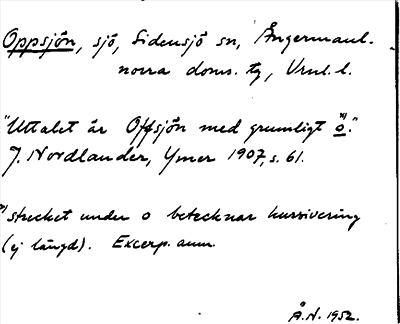 Oppsjön, sjö, Sidensjö sn, Ångermanl.
norra doms. tg, Vrnl. l.
"Uttalet är Offsjön med grumligt o*)."
J. Nordlander, Ymer 1907, s. 61.
*) strecket under o betecknar kursivering
(ej längd). Excerp. anm.
Å.N. 1952.